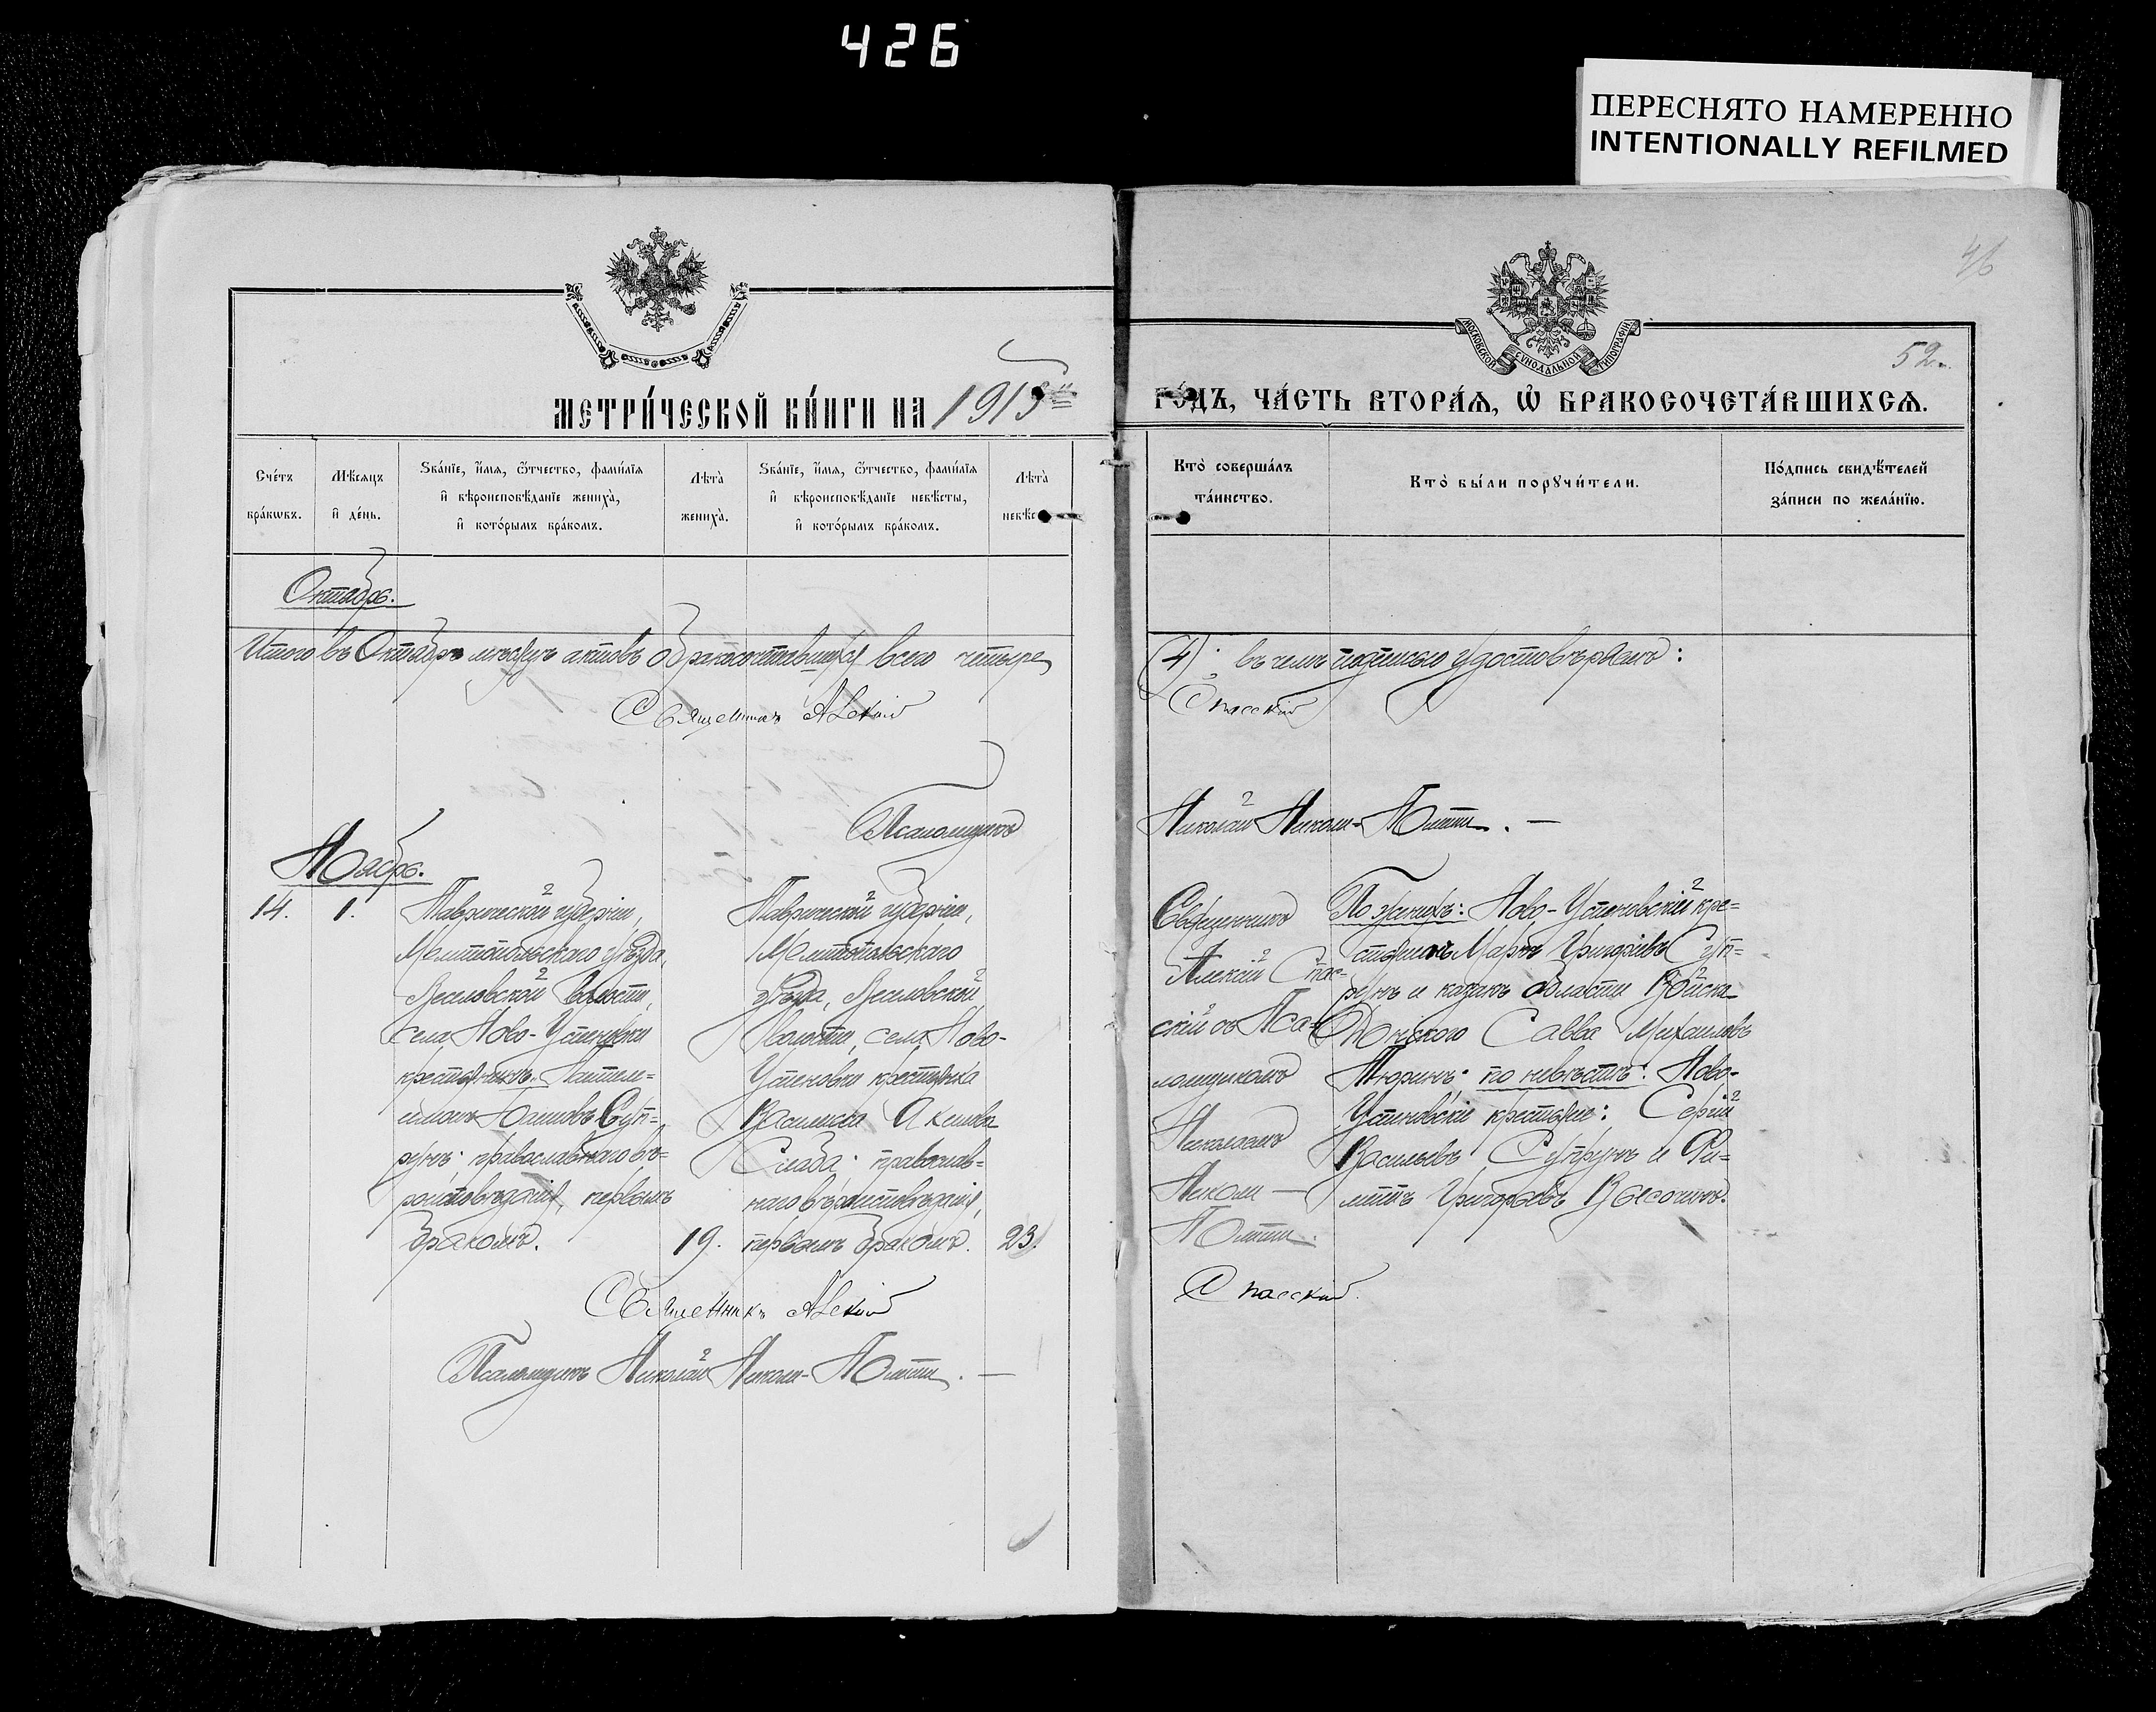 426
ПЕРЕСНЯТО НАМЕРЕННО
INTENTIONALLY REFILMED
46
МОСКОВСКОЙ СѴНОДАЛЬНОЙ ТИПОГРАФІИ
52.
МЕТРИ́ЧЕСКОЙ КНИ́ГИ НА 1915 ГО́ДЪ, ЧА́СТЬ ВТОРА́Ѧ, Ѡ БРАКОСОЧЕТА́ВШИХСѦ.
Сче́тъ бра́кωвъ.
Мѣ́сяцъ и де́нь.
Ѕва́нїе, и́мѧ, ѻ́тчество, фами́лїѧ
и҆ вѣроисповѣ́данїе жениха̀,
и҆ кото́рымъ бра́комъ.
Лѣта̀ жениха̀.
Ѕва́нїе, и́мѧ, ѻ́тчество, фами́лїѧ
и҆ вѣроисповѣ́данїе невѣ́сты,
и҆ кото́рымъ бра́комъ.
Лѣта̀
Кто̀ соверша́лъ
та́инство.
Кто̀ бы́ли порꙋчи́тели.
По́дпись свидѣ́телей
за́писи по жела́нїю.
Октябрь.
Итого въ Октябрѣ мѣсяцѣ актовъ о бракосочетавшихся всего четыре
(4): въ чемъ подписью удостовѣряемъ:
Священникъ Алексій
Спасскій
Псаломщикъ
Николай Николи-
Ноябрь.
14. 1.
Таврической губерніи,
Мелитопольскаго уѣзда,
Веселовской волости,
села Ново-Успеновки
крестьянинъ Пантеле=
имонъ Суп=
рунъ; православнаго вѣ=
роисповѣданія, первымъ
бракомъ.
19.
Таврической губерніи,
Мелитопольскаго
уѣзда, Веселовской
волости, села Ново-
Успеновки крестьянка
Василиса
Слаба; православ=
наго вѣроисповѣданія,
первымъ бракомъ.
23.
Священникъ
Алексій Спас=
скій съ Пса=
ломщикомъ
Николаемъ
Николи-
По женихѣ: Ново-Успеновскій кре=
стьянинъ Маркъ Григорьевъ Суп=
рунъ и казакъ области Войска
Донского Савва Михаиловъ
Тюринъ; по невѣстѣ: Ново-
Успеновскіе крестьяне: Сергій
Васильевъ Супрунъ и Фи=
липпъ Григорьевъ Высочинъ.
Священникъ Алексій
Спасскій.
Псаломщикъ Николай Николи-